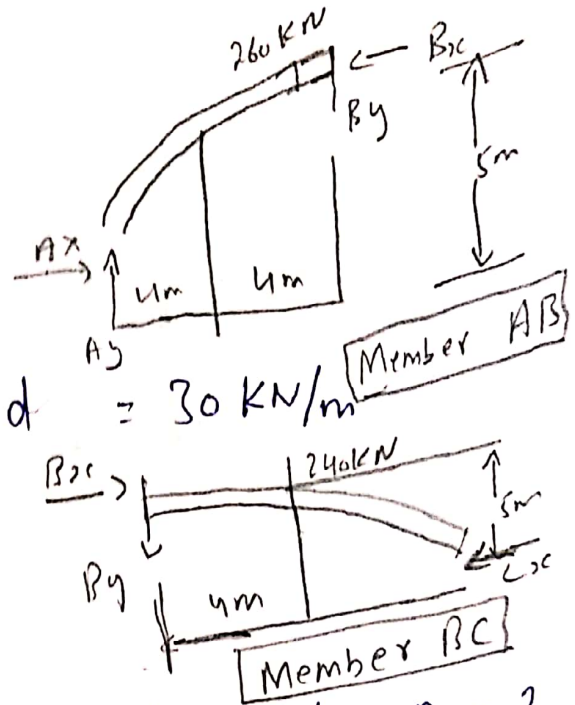 260KN
Bx
By
5m
Ax
4m
4m
Ay
Member AB
d = 30 KN/m
Bx
240KN
5m
By
4m
Cx
Member BC